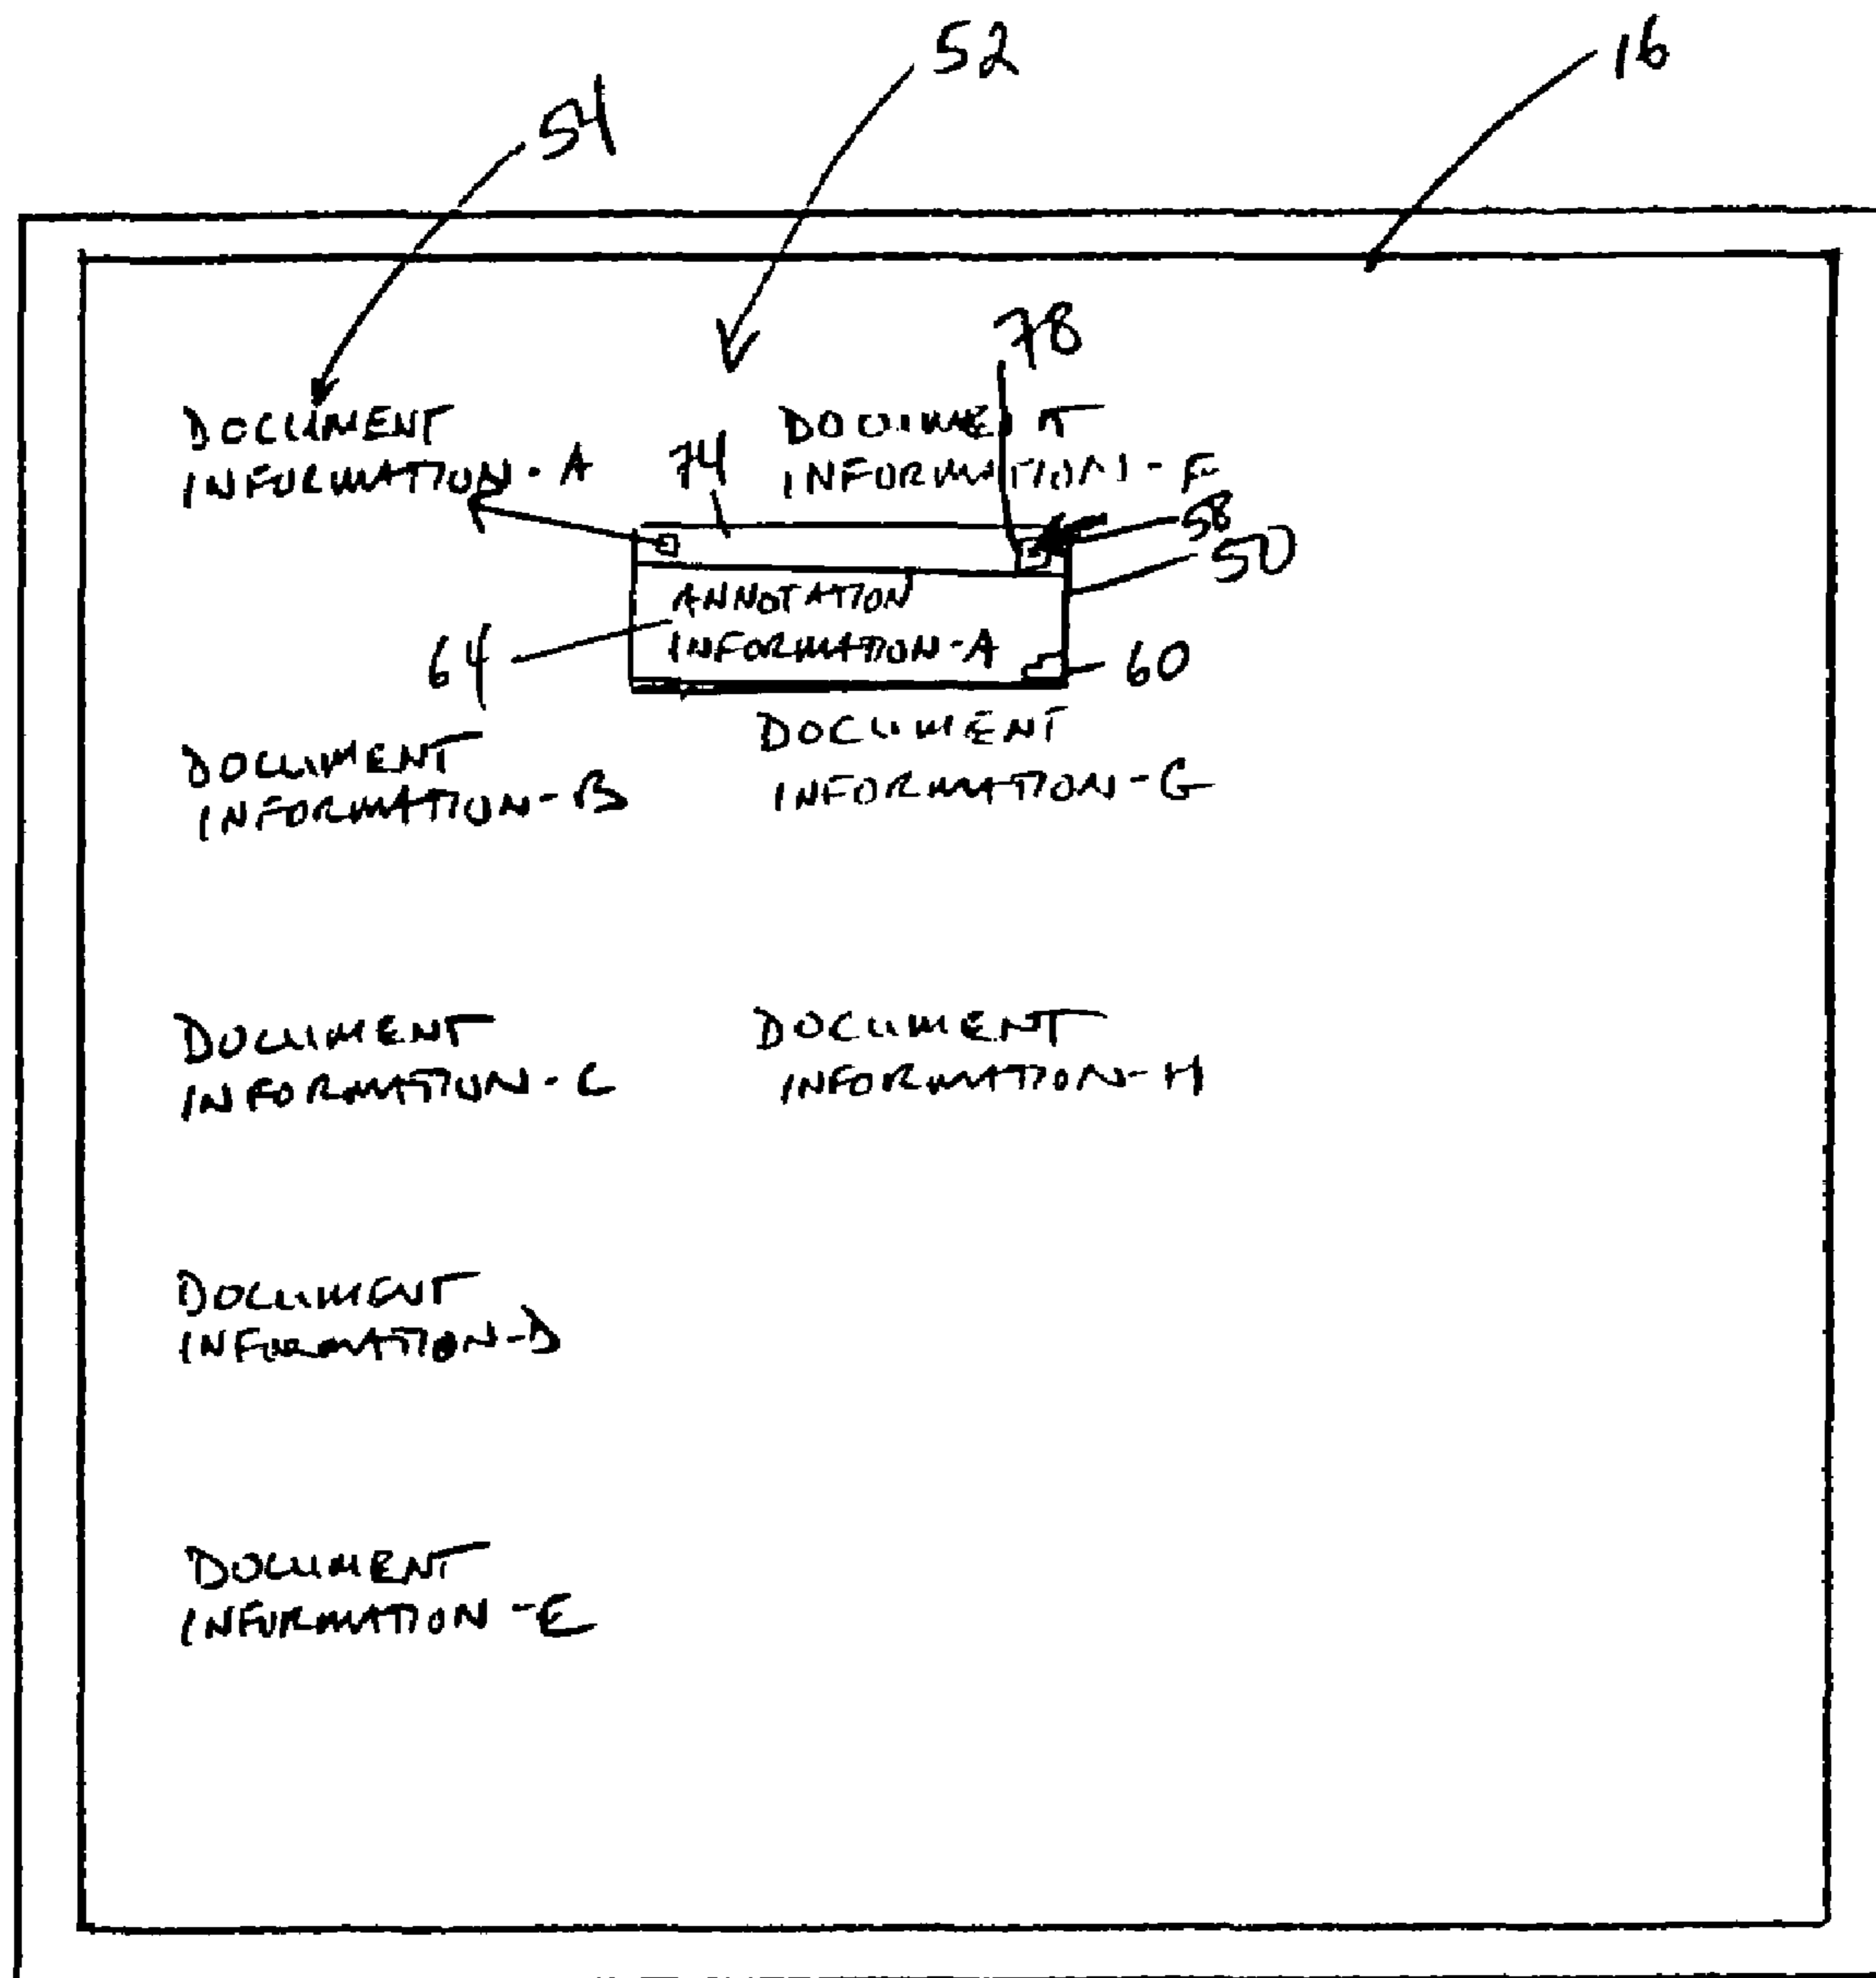 52
16
54
78
DOCUMENT
INFORMATION-A
74
DOCUMENT
INFORMATION-F
58
50
ANNOTATION
INFORMATION-A
64
60
DOCUMENT
INFORMATION-B
DOCUMENT
INFORMATION-G
DOCUMENT
INFORMATION-C
DOCUMENT
INFORMATION-H
DOCUMENT
INFORMATION-D
DOCUMENT
INFORMATION-E